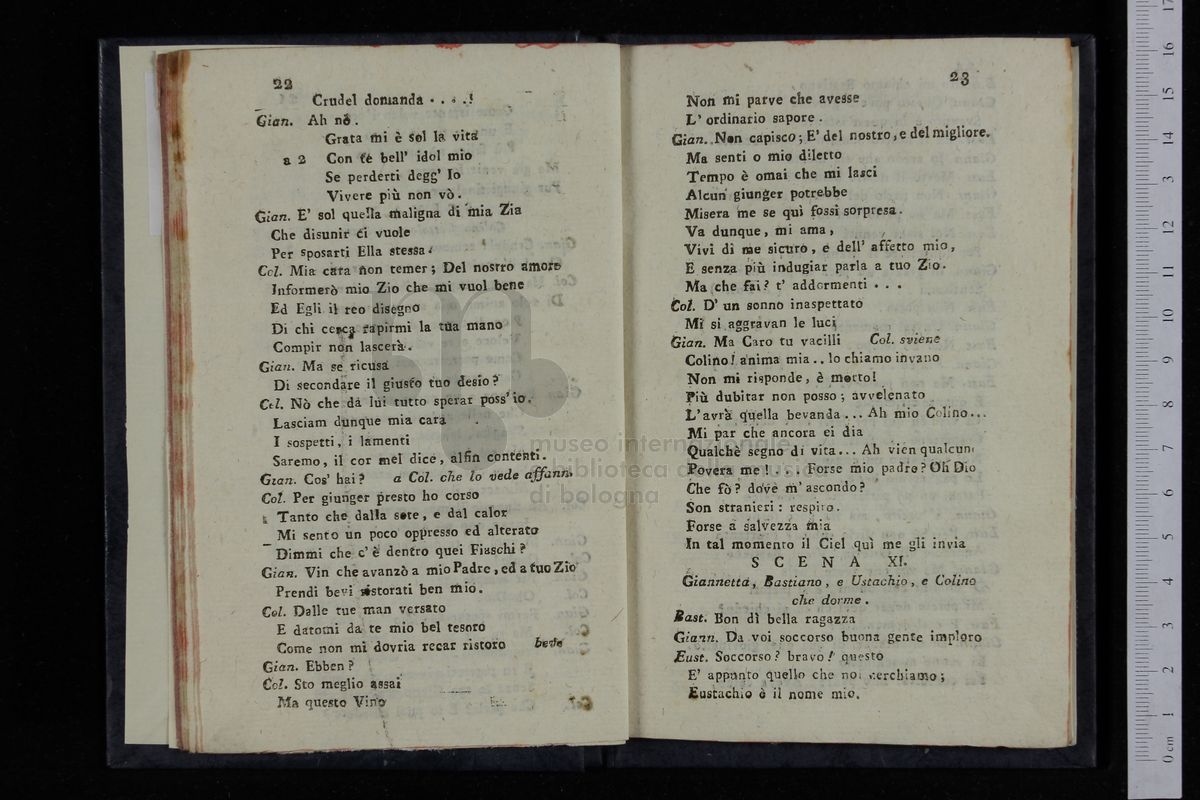 22
Crudel domanda . . . .!
Gian. Ah nò.
Grata mi è sol la vita
a 2 Con te bell' idol mio
Se perderti degg' Io
Vivere più non vò.
Gian. E' sol quella maligna di mia Zia
Che disunir ci vuole
Per sposarti Ella stessa.
Col. Mia cara non temer; Del nostro amore
Informerò mio Zio che mi vuol bene
Ed Egli il reo disegno
Di chi cerca rapirmi la tua mano
Compir non lascerà.
Gian. Ma se ricusa
Di secondare il giusto tuo desio?
Col. Nò che da lui tutto sperar poss' io.
Lasciam dunque mia cara
I sospetti, i lamenti
Saremo, il cor mel dice, alfin contenti.
Gian. Cos' hai? a Col. che lo vede affann.
Col. Per giunger presto ho corso
Tanto che dalla sete, e dal calor
Mi sento un poco oppresso ed alterato
Dimmi che c' è dentro quei Fiaschi?
Gian. Vin che avanzò a mio Padre, ed a tuo Zio
Prendi bevi ristorati ben mio.
Col. Dalle tue man versato
E datomi da te mio bel tesoro
Come non mi dovria recar ristoro beve
Gian. Ebben?
Col. Sto meglio assai
Ma questo Vino
23
Non mi parve che avesse
L' ordinario sapore.
Gian. Non capisco; E' del nostro, e del migliore.
Ma senti o mio diletto
Tempo è omai che mi lasci
Alcun giunger potrebbe
Misera me se quì fossi sorpresa.
Va dunque, mi ama,
Vivi di me sicuro, e dell' affetto mio,
E senza più indugiar parla a tuo Zio.
Ma che fai? t' addormenti . . .
Col. D' un sonno inaspettato
Mi si aggravan le luci
Gian. Ma Caro tu vacilli Col. sviene
Colino! anima mia .. lo chiamo invano
Non mi risponde, è morto!
Più dubitar non posso; avvelenato
L' avrà quella bevanda ... Ah mio Colino...
Mi par che ancora ei dia
Qualchè segno di vita... Ah vien qualcun
Povera me! . . . Forse mio padre? Oh Dio
Che fò? dove m' ascondo?
Son stranieri: respiro.
Forse a salvezza mia
In tal momento il Ciel quì me gli invia
SCENA XI.
Giannetta, Bastiano, e Ustachio, e Colino
che dorme.
Bast. Bon dì bella ragazza
Giann. Da voi soccorso buona gente imploro
Eust. Soccorso? bravo! questo
E' appunto quello che noi cerchiamo;
Eustachio è il nome mio.
museo internazionale
biblioteca della musica
di bologna
0 cm 1 2 3 4 5 6 7 8 9 10 11 12 13 14 15 16 17